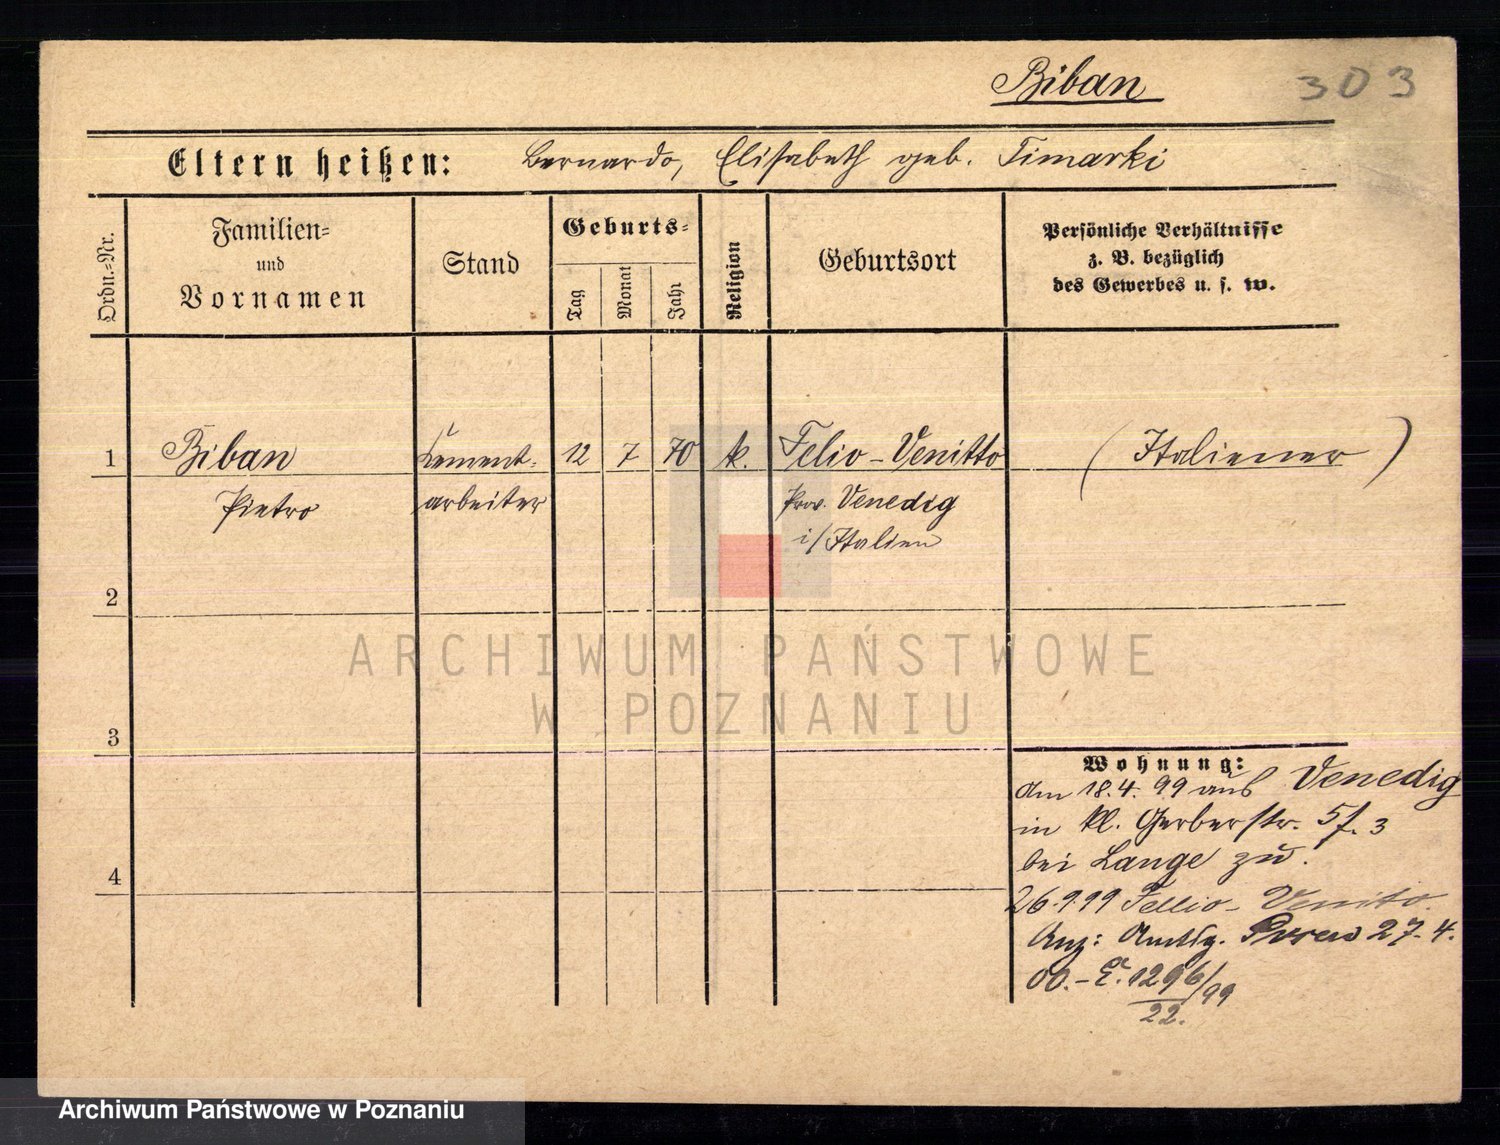 Biban 303
Eltern heißen: Bernardo, Elisabeth geb. Timarki
Ordn.-Nr.
Familien-
und
Vornamen
Stand
Geburts-
Tag
Monat
Jahr
Religion
Geburtsort
Persönliche Verhältnisse
z. B. bezüglich
des Gewerbes u. s. w.
1 Biban Cement- 12 7 70 k. Felio-Venitto (Italiener)
Pietro arbeiter Prov. Venedig
i/Italien
2
3
4
Wohnung:
Am 18.4.99 aus Venedig
in kl. Gerberstr. 5f. 3
bei Lange zu.
26.9.99 Fellio-Venito.
Anz: Amtsg. Posen 27.4.
00.-E. 1296/99
22.
ARCHIWUM PAŃSTWOWE
W POZNANIU
Archiwum Państwowe w Poznaniu